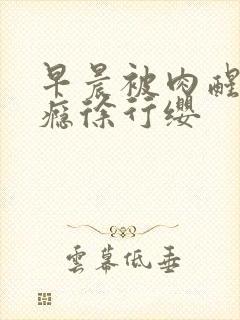 早晨被肉醒
瘾徐行缨
雲幕低垂